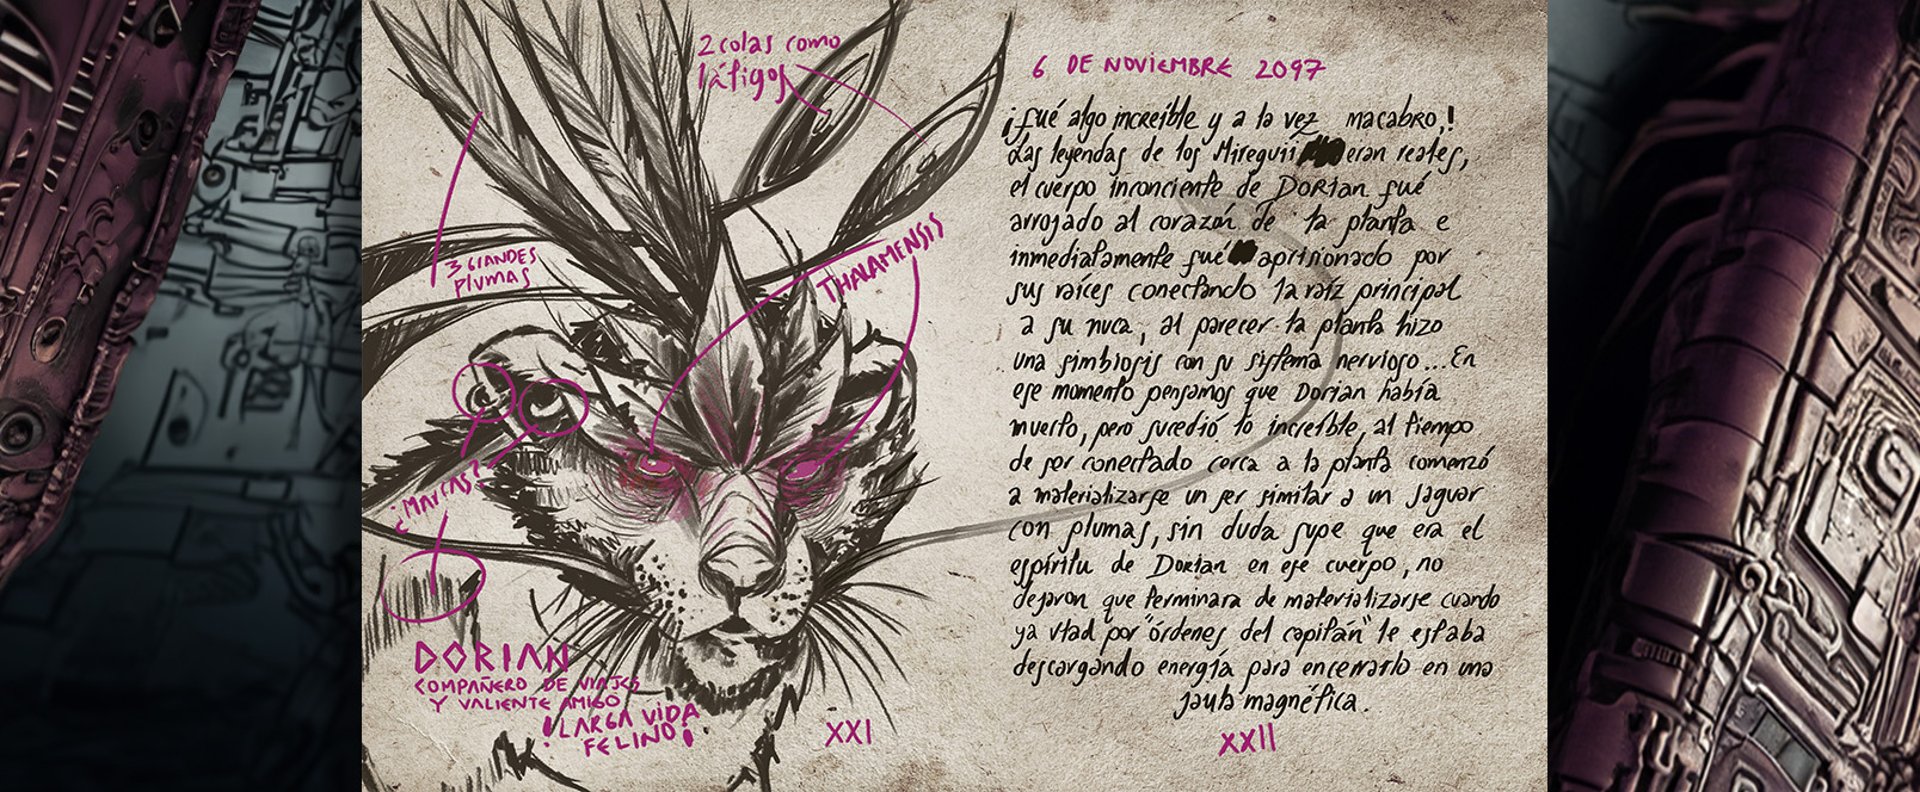 2 colas como
látigos
3 GRANDES
plumas
THALAMENSIS
¿MARCAS?
DORIAN
COMPAÑERO DE VIAJES
Y VALIENTE AMIGO
¡LARGA VIDA
FELINO!
XXI
6 DE NOVIEMBRE 2097
¡fué algo increíble y a la vez macabro,!
Las leyendas de los Mireguii eran reales,
el cuerpo inconciente de DORIAN fué
arrojado al corazón de la planta e
inmediatamente fué aprisionado por
sus raíces conectando la raíz principal
a su nuca, al parecer la planta hizo
una simbiosis con su sistema nervioso... En
ese momento pensamos que Dorian había
muerto, pero sucedió lo increíble, al tiempo
de ser conectado cerca a la planta comenzó
a materializarse un ser similar a un jaguar
con plumas, sin duda supe que era el
espíritu de Dorian en ese cuerpo, no
dejaron que terminara de materializarse cuando
ya vlad por "órdenes del capitán" le estaba
descargando energía para encerrarlo en una
jaula magnética.
XXII